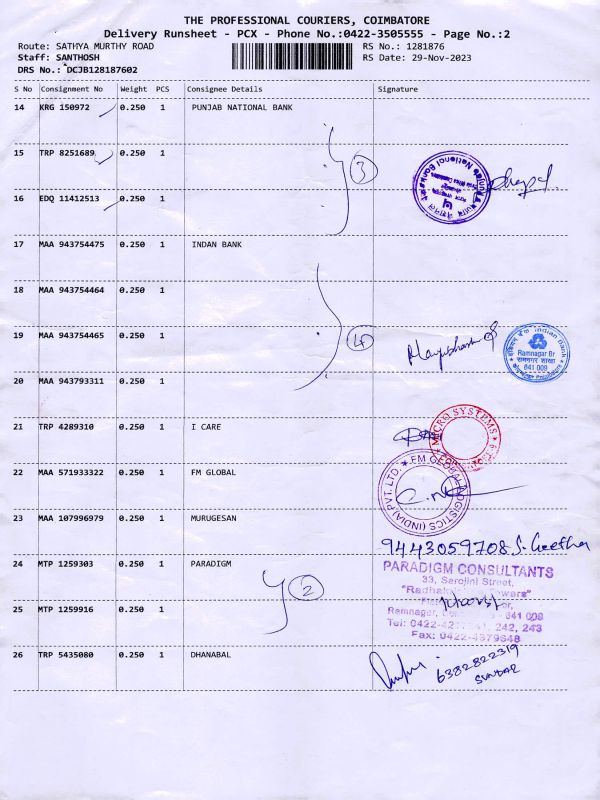 THE PROFESSIONAL COURIERS, COIMBATORE
Delivery Runsheet - PCX - Phone No.:0422-3505555 - Page No.:2
Route: SATHYA MURTHY ROAD RS No.: 1281876
Staff: SANTHOSH RS Date: 29-Nov-2023
DRS No.: DCJB128187602
S No Consignment No Weight PCS Consignee Details Signature
14 KRG 150972 0.250 1 PUNJAB NATIONAL BANK
15 TRP 8251689 0.250 1
3
16 EDQ 11412513 0.250 1
17 MAA 943754475 0.250 1 INDAN BANK
18 MAA 943754464 0.250 1
19 MAA 943754465 0.250 1
4
Indian Bank
Ramnagar Br
रामनगर शाखा
641 009
20 MAA 943793311 0.250 1
21 TRP 4289310 0.250 1 I CARE
MICRO SYSTEMS
22 MAA 571933322 0.250 1 FM GLOBAL
FM GLOBAL LOGISTICS (INDIA) PVT. LTD.
23 MAA 107996979 0.250 1 MURUGESAN
9443059708 S. Geetha
24 MTP 1259303 0.250 1 PARADIGM
PARADIGM CONSULTANTS
33, Sarojini Street,
2
Ramnagar, 641 009
25 MTP 1259916 0.250 1
Tel: 0422-42 242, 243
Fax: 0422-4379648
26 TRP 5435080 0.250 1 DHANABAL
6382822319
SUNDAR